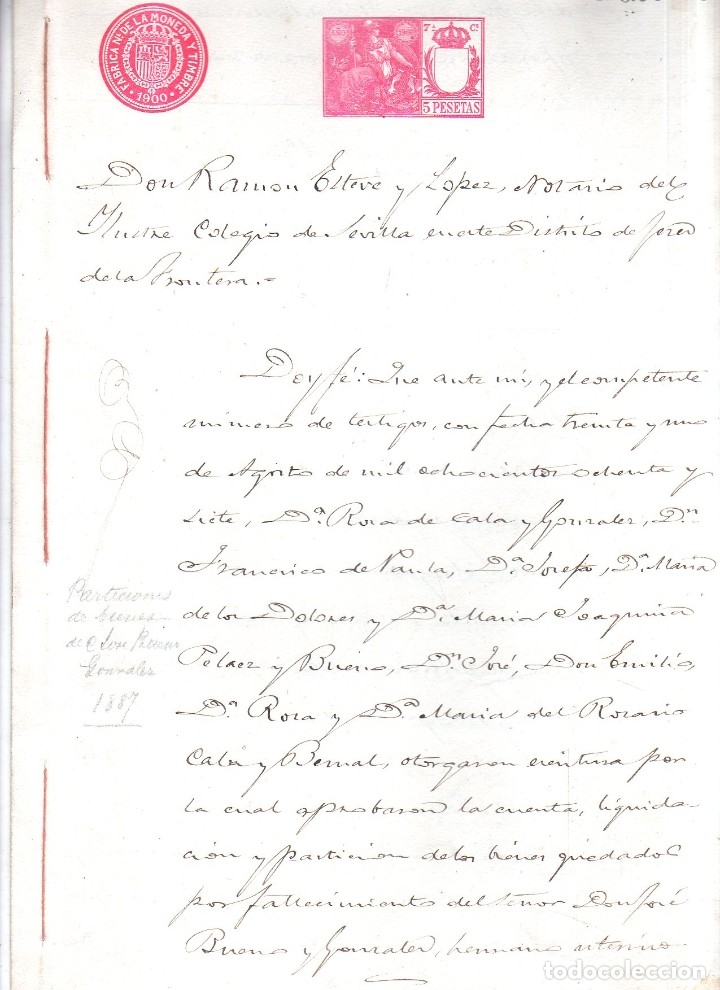 FABRICA Nl. DE LA MONEDA Y TIMBRE
1900
7ª Cª
5 PESETAS
Don Ramon Esteve y Lopez, Notario del
Ilustre Colegio de Sevilla en este Distrito de Jerez
de la Frontera.=
Doy fé: Que ante mi, y el competente
número de testigos, con fecha treinta y uno
de Agosto de mil ochocientos ochenta y
siete, D.ª Rosa de Cala y Gonzalez, D.n
Francisco de Paula, D.ª Josefa, D.ª Maria
de los Dolores y D.ª Maria Joaquina
Pelaez y Bueno, D.n José, Don Emilio,
D.ª Rosa y D.ª Maria del Rosario
Cala y Bernal, otorgaron escritura por
la cual aprobaron la cuenta, liquida-
ción y particion de los bienes quedados
por fallecimiento del Señor Don José
Bueno y Gonzalez, hermano uterino
Particiones
de bienes
de D José Bueno
Gonzalez
1887
todocoleccion